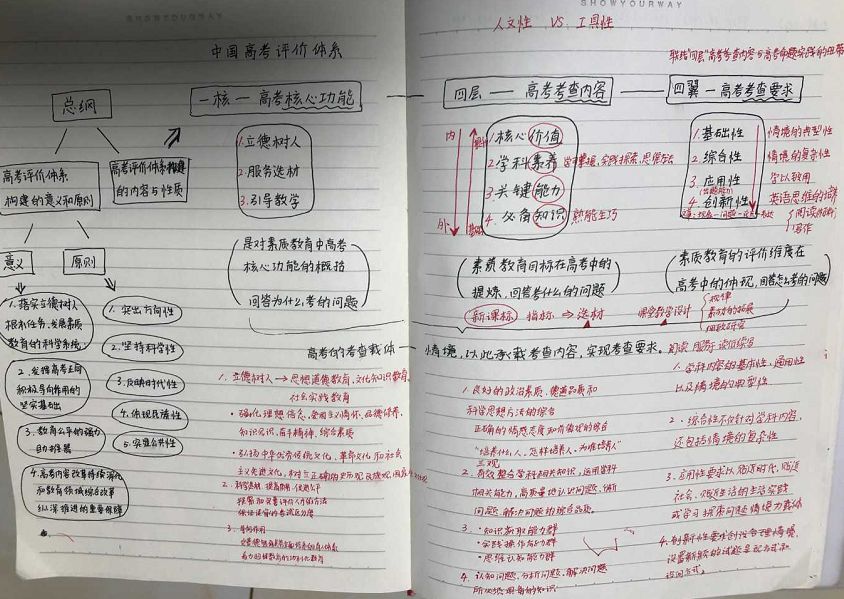 SHOWYOURWAY
中国高考评价体系
总纲
一核 — 高考核心功能
高考评价体系
构建的意义和原则
高考评价体系构建
的内容与性质
1.立德树人
2.服务选材
3.引导教学
意义
原则
是对素质教育中高考
核心功能的概括
回答为什么考的问题
1.落实立德树人
根本任务,发展素质
教育的科学系统
2.发挥高考正向
积极导向作用的
坚实基础
3.教育公平的强力
助推器
4.高考内容改革持续深化
和教育领域综合改革
纵深推进的重要保障
1.突出方向性
2.坚持科学性
3.反映时代性
4.体现民族性
5.实现公共性
高考的考查载体 — 情境,以此承载考查内容,实现考查要求.
1.立德树人 → 思想道德教育,文化知识教育,
社会实践教育
强化理想信念,爱国主义情怀,品德修养,
知识见识,奋斗精神,综合素质
弘扬中华优秀传统文化,革命文化和社会
主义先进文化,
SHOWYOURWAY
人文性 VS 工具性
联结"四层"高考考查内容与高考命题实践的纽带
四层 — 高考考查内容
四翼 — 高考考查要求
内
外
1.核心价值
2.学科素养
3.关键能力
4.必备知识
熟能生巧
1.基础性
2.综合性
3.应用性
4.创新性
情境的典型性
情境的复杂性
学以致用
英语思维的培养
写作
素质教育目标在高考中的
提炼,回答考什么的问题
素质教育的评价维度在
高考中的体现,回答怎么考的问题
新课标 指标 → 选材
课堂教学设计
规律
1.良好的政治素质、道德品质和
科学思想方法的综合
正确的情感态度和价值观的综合
"培养什么人,怎样培养人,为谁培养人"
三观
2.有效整合学科相关知识,运用学科
相关能力,高质量地认识问题,分析
问题,解决问题的综合品质.
3.知识获取能力群
实践操作能力群
思维认知能力群
4.认知问题,分析问题,解决问题
所必须具备的知识
1.学科内容的基本性,通用性
以及情境的典型性
2.综合性不仅针对学科内容,
还包括情境的复杂性
3.应用性要求以贴近时代,贴近
社会,贴近生活的生活实践
或学习探索问题情境为载体
4.创新性要求创设合理情境,
设置新颖的试题呈现方式和
设问方式.